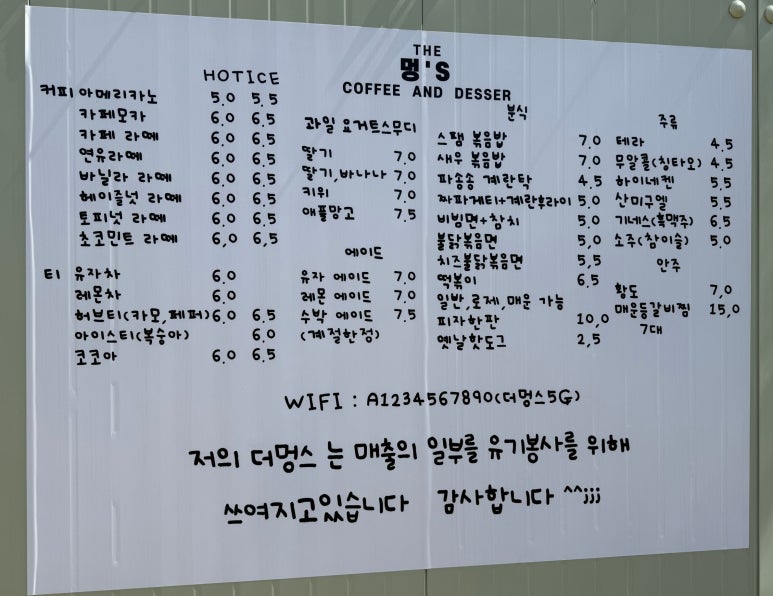 THE
멍'S
COFFEE AND DESSER
HOTICE
커피 아메리카노 5.0 5.5
카페모카 6.0 6.5
카페 라떼 6.0 6.5
연유라떼 6.0 6.5
바닐라 라떼 6.0 6.5
헤이즐넛 라떼 6.0 6.5
토피넛 라떼 6.0 6.5
초코민트 라떼 6,0 6,5
티 유자차 6.0
레몬차 6.0
허브티(카모,페퍼) 6.0 6.5
아이스티(복숭아) 6.0
코코아 6.0 6.5
과일 요거트스무디
딸기 7.0
딸기,바나나 7.0
키위 7.0
애플망고 7.5
에이드
유자 에이드 7.0
레몬 에이드 7.0
수박 에이드 7.5
(계절한정)
분식
스팸 볶음밥 7.0
새우 볶음밥 7.0
파송송 계란탁 4.5
짜파게티+계란후라이 5.0
비빔면+참치 5.0
불닭볶음면 5,0
치즈불닭볶음면 5,5
떡볶이 6.5
일반,로제,매운 가능
피자한판 10,0
옛날핫도그 2,5
주류
테라 4.5
무알콜(칭타오) 4.5
하이네켄 5.5
산미구엘 5.5
기네스(흑맥주) 6.5
소주(참이슬) 5.0
안주
황도 7,0
매운등갈비찜 15,0
7대
WIFI : A1234567890(더멍스5G)
저의 더멍스 는 매출의 일부를 유기봉사를 위해
쓰여지고있습니다 감사합니다 ^^;;;